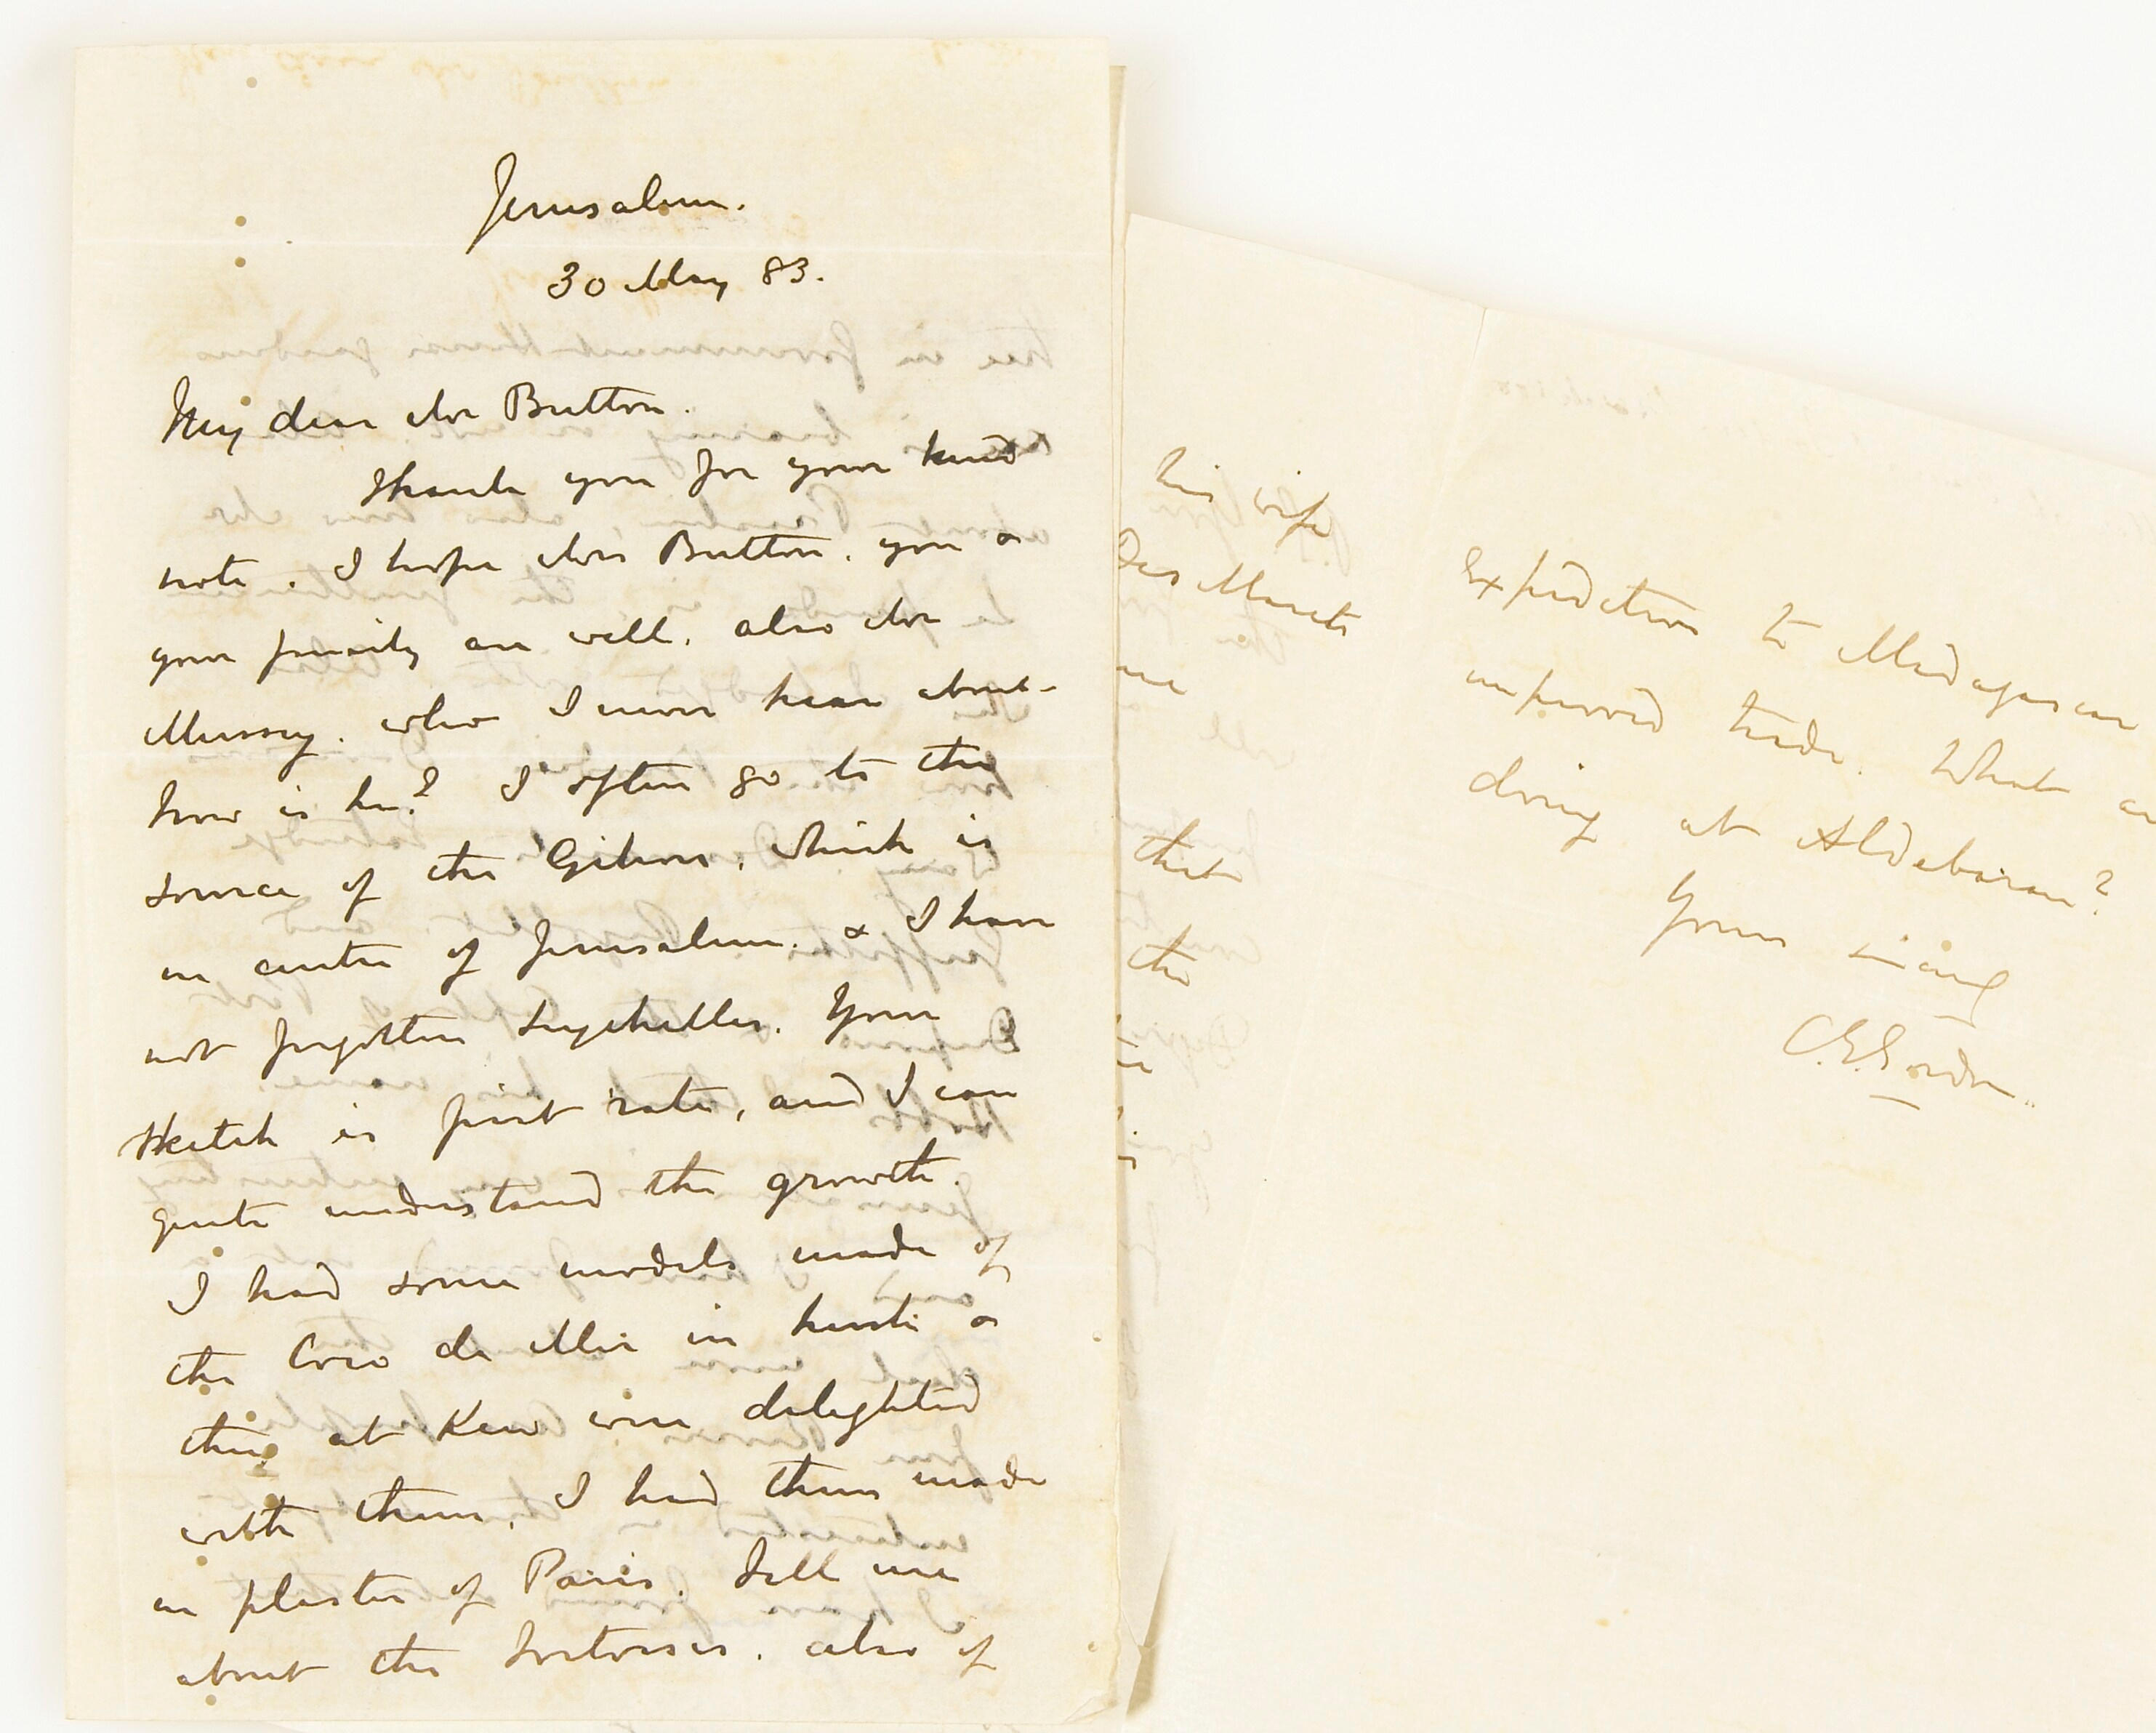 Jerusalem.
30 May 83.
My dear Mr Button.
Thanks you for your kind
note. I hope Mrs Button, you &
your family are well, also Mr
Mussey. who I never hear about
how is he? I often go to the
source of the Gihon, which is
in centre of Jerusalem. & I have
not forgotten Seychelles. Your
sketch is first rate, and I can
quite understand the growth.
I had some models made of
the Coco de Mer in husk &
they at Kew were delighted
with them, I had them made
in plaster of Paris. Tell me
about the Tortoises. also of
his wife
Des Marets
me
that
the
Expedition to Madagascar
improved trade. What
doing at Aldebaran?
Yours
C.E.Gordon.